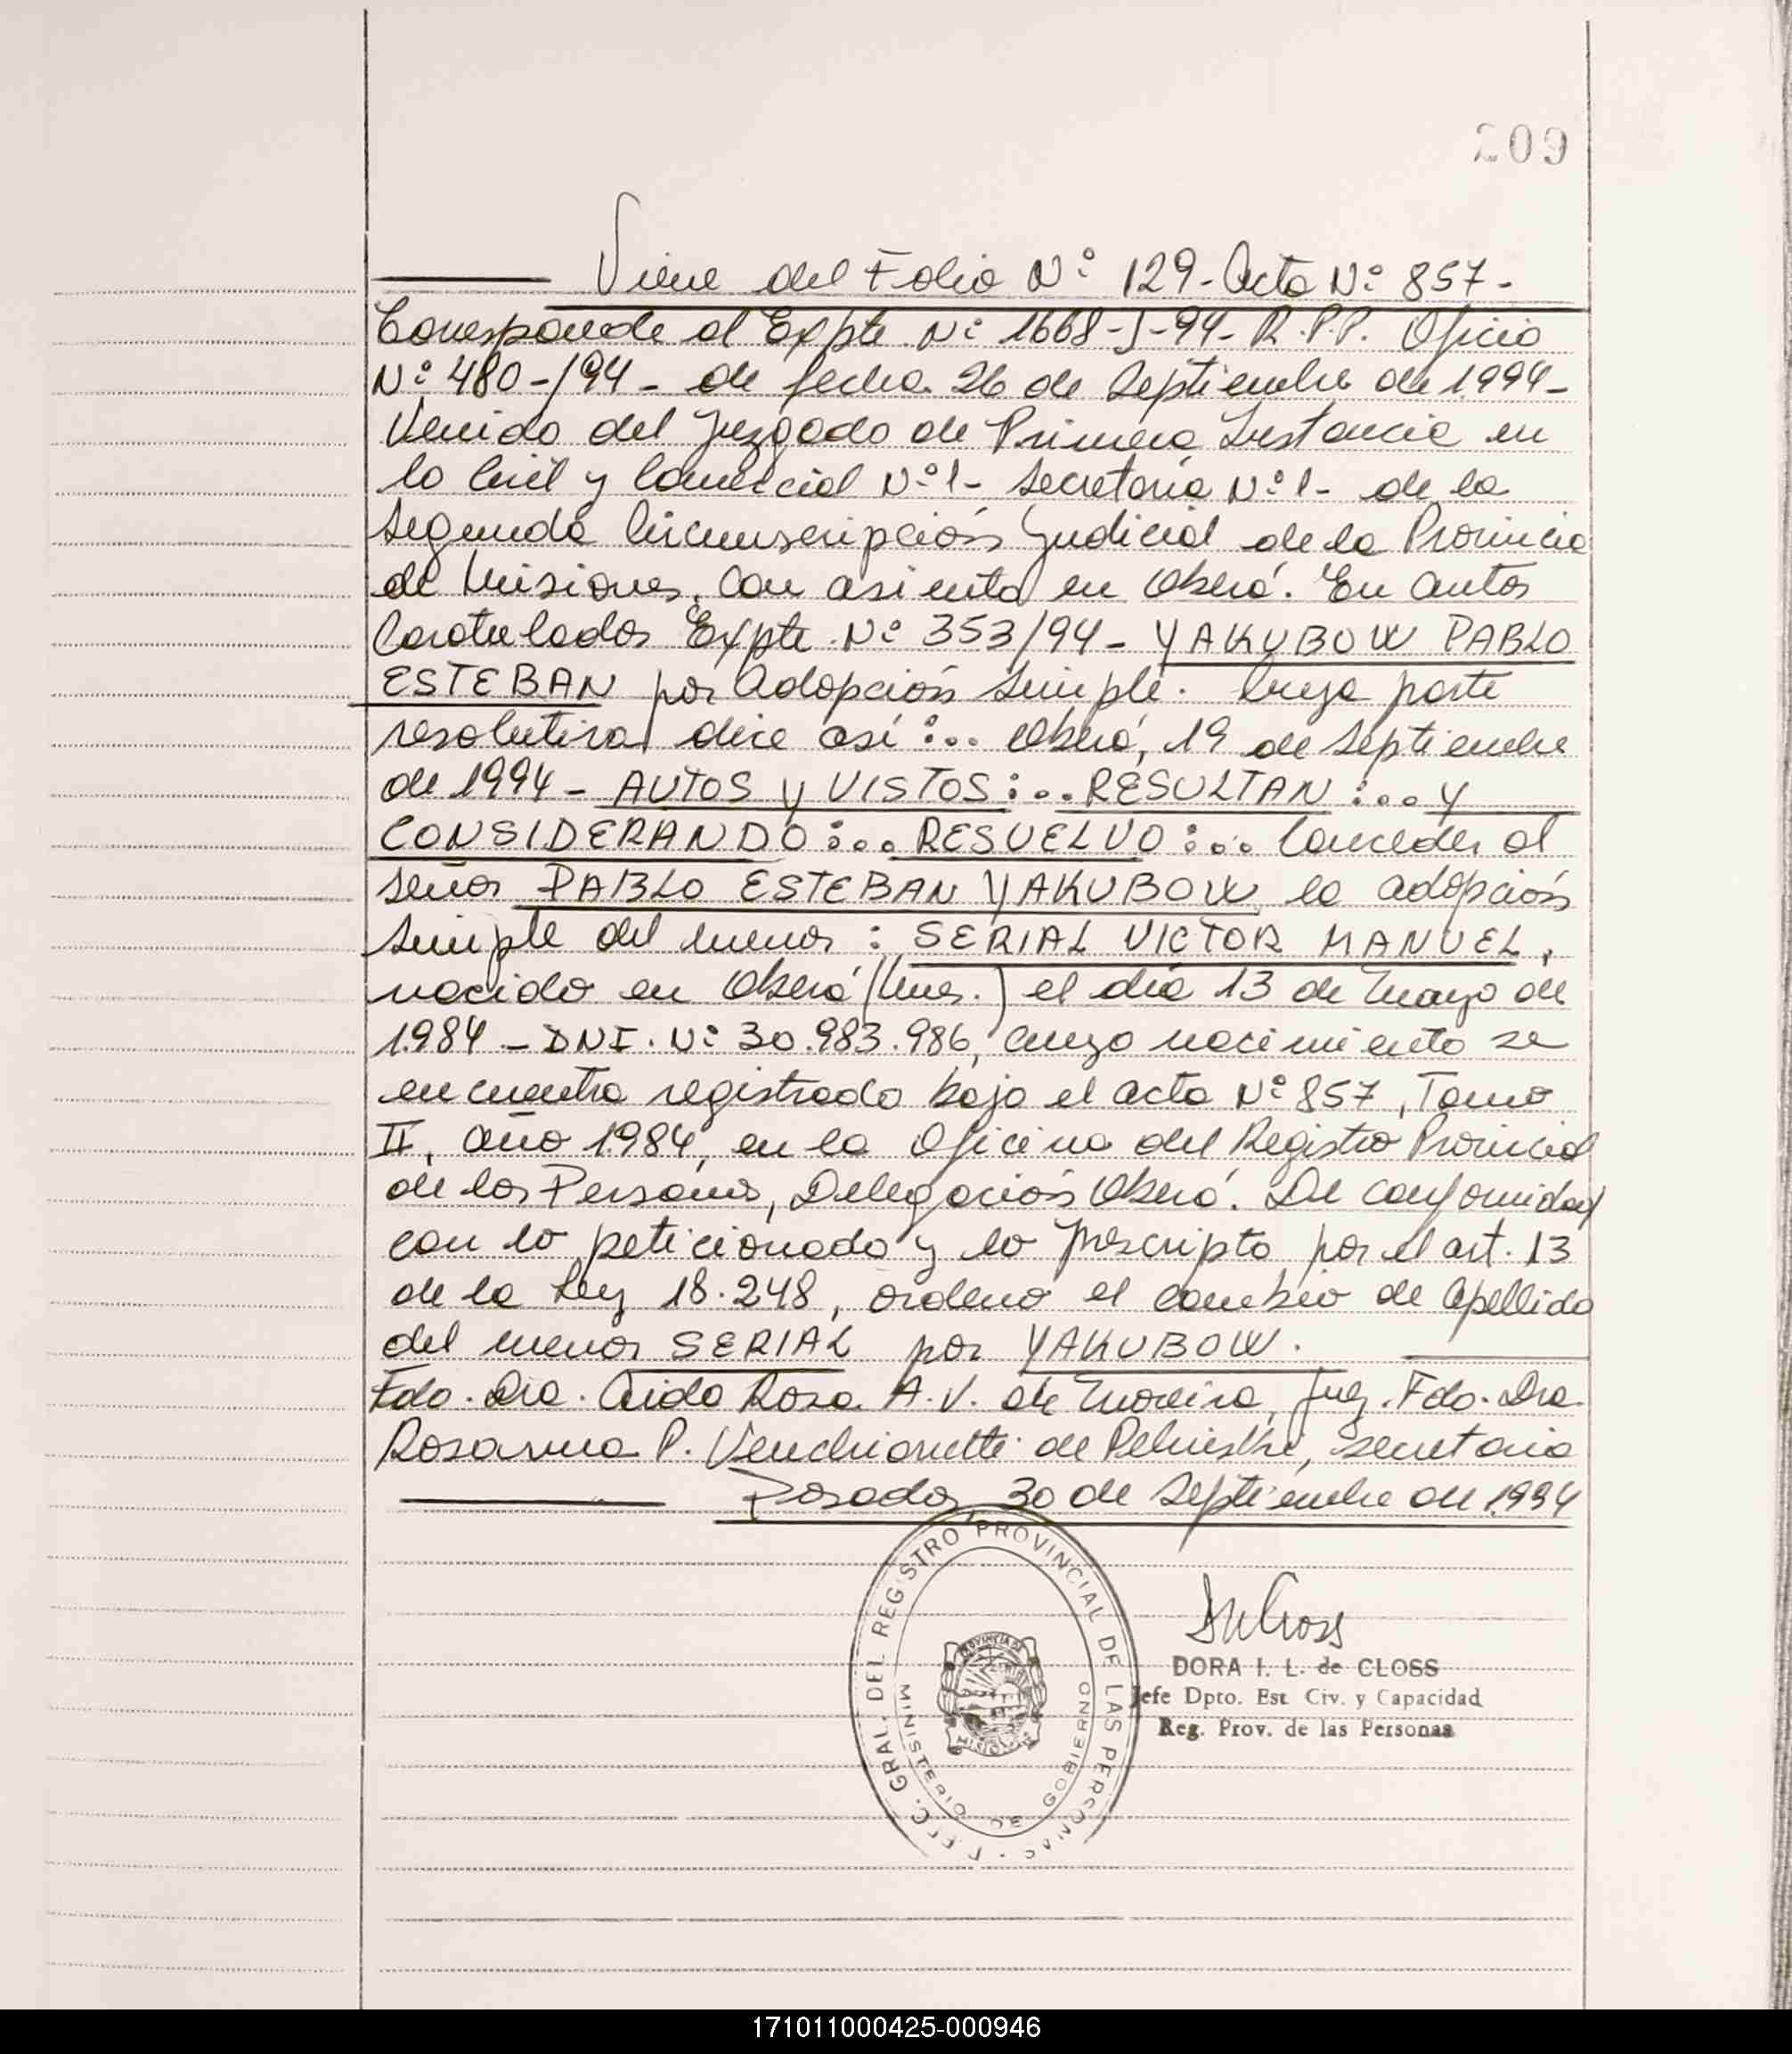 209
Viene del Folio Nº 129- Acta Nº 857-
Corresponde al Expte Nº 1668-J-94- R.P.P. Oficio
Nº 480-/94- de fecha 26 de Septiembre de 1.994-
Venido del Juzgado de Primera Instancia en
lo Civil y Comercial Nº 1- Secretaría Nº 1- de la
Segunda Circunscripción Judicial de la Provincia
de Misiones, con asiento en Oberá. En autos
Caratulados Expte Nº 353/94- YAKUBOW PABLO
ESTEBAN por Adopción Simple. Cuya parte
resolutiva dice así:.. Oberá, 19 de Septiembre
de 1994- AUTOS y VISTOS:.. RESULTAN:... y
CONSIDERANDO:... RESUELVO:... Conceder al
señor PABLO ESTEBAN YAKUBOW, la adopción
simple del menor: SERIAL VICTOR MANUEL,
nacido en Oberá (Mnes.) el día 13 de Mayo de
1.984 - DNI. Nº 30.983.986, cuyo nacimiento se
encuentra registrado bajo el acta Nº 857, Tomo
II, año 1984, en la Oficina del Registro Provincial
de las Personas, Delegación Oberá. De conformidad
con lo peticionado y lo prescripto por el art. 13
de la Ley 18.248, ordeno el cambio de apellido
del menor SERIAL por YAKUBOW.
Fdo. Dra. Aida Rosa A.V. de Moreira, Juez. Fdo. Dra
Rosanna P. de secretaria
Posadas, 30 de Septiembre de 1.994
DIREC. GRAL. DEL REGISTRO PROVINCIAL DE LAS PERSONAS
MINISTERIO DE GOBIERNO
PROVINCIA DE
MISIONES
DORA I. L. de CLOSS
Jefe Dpto. Est. Civ. y Capacidad
Reg. Prov. de las Personas
171011000425-000946